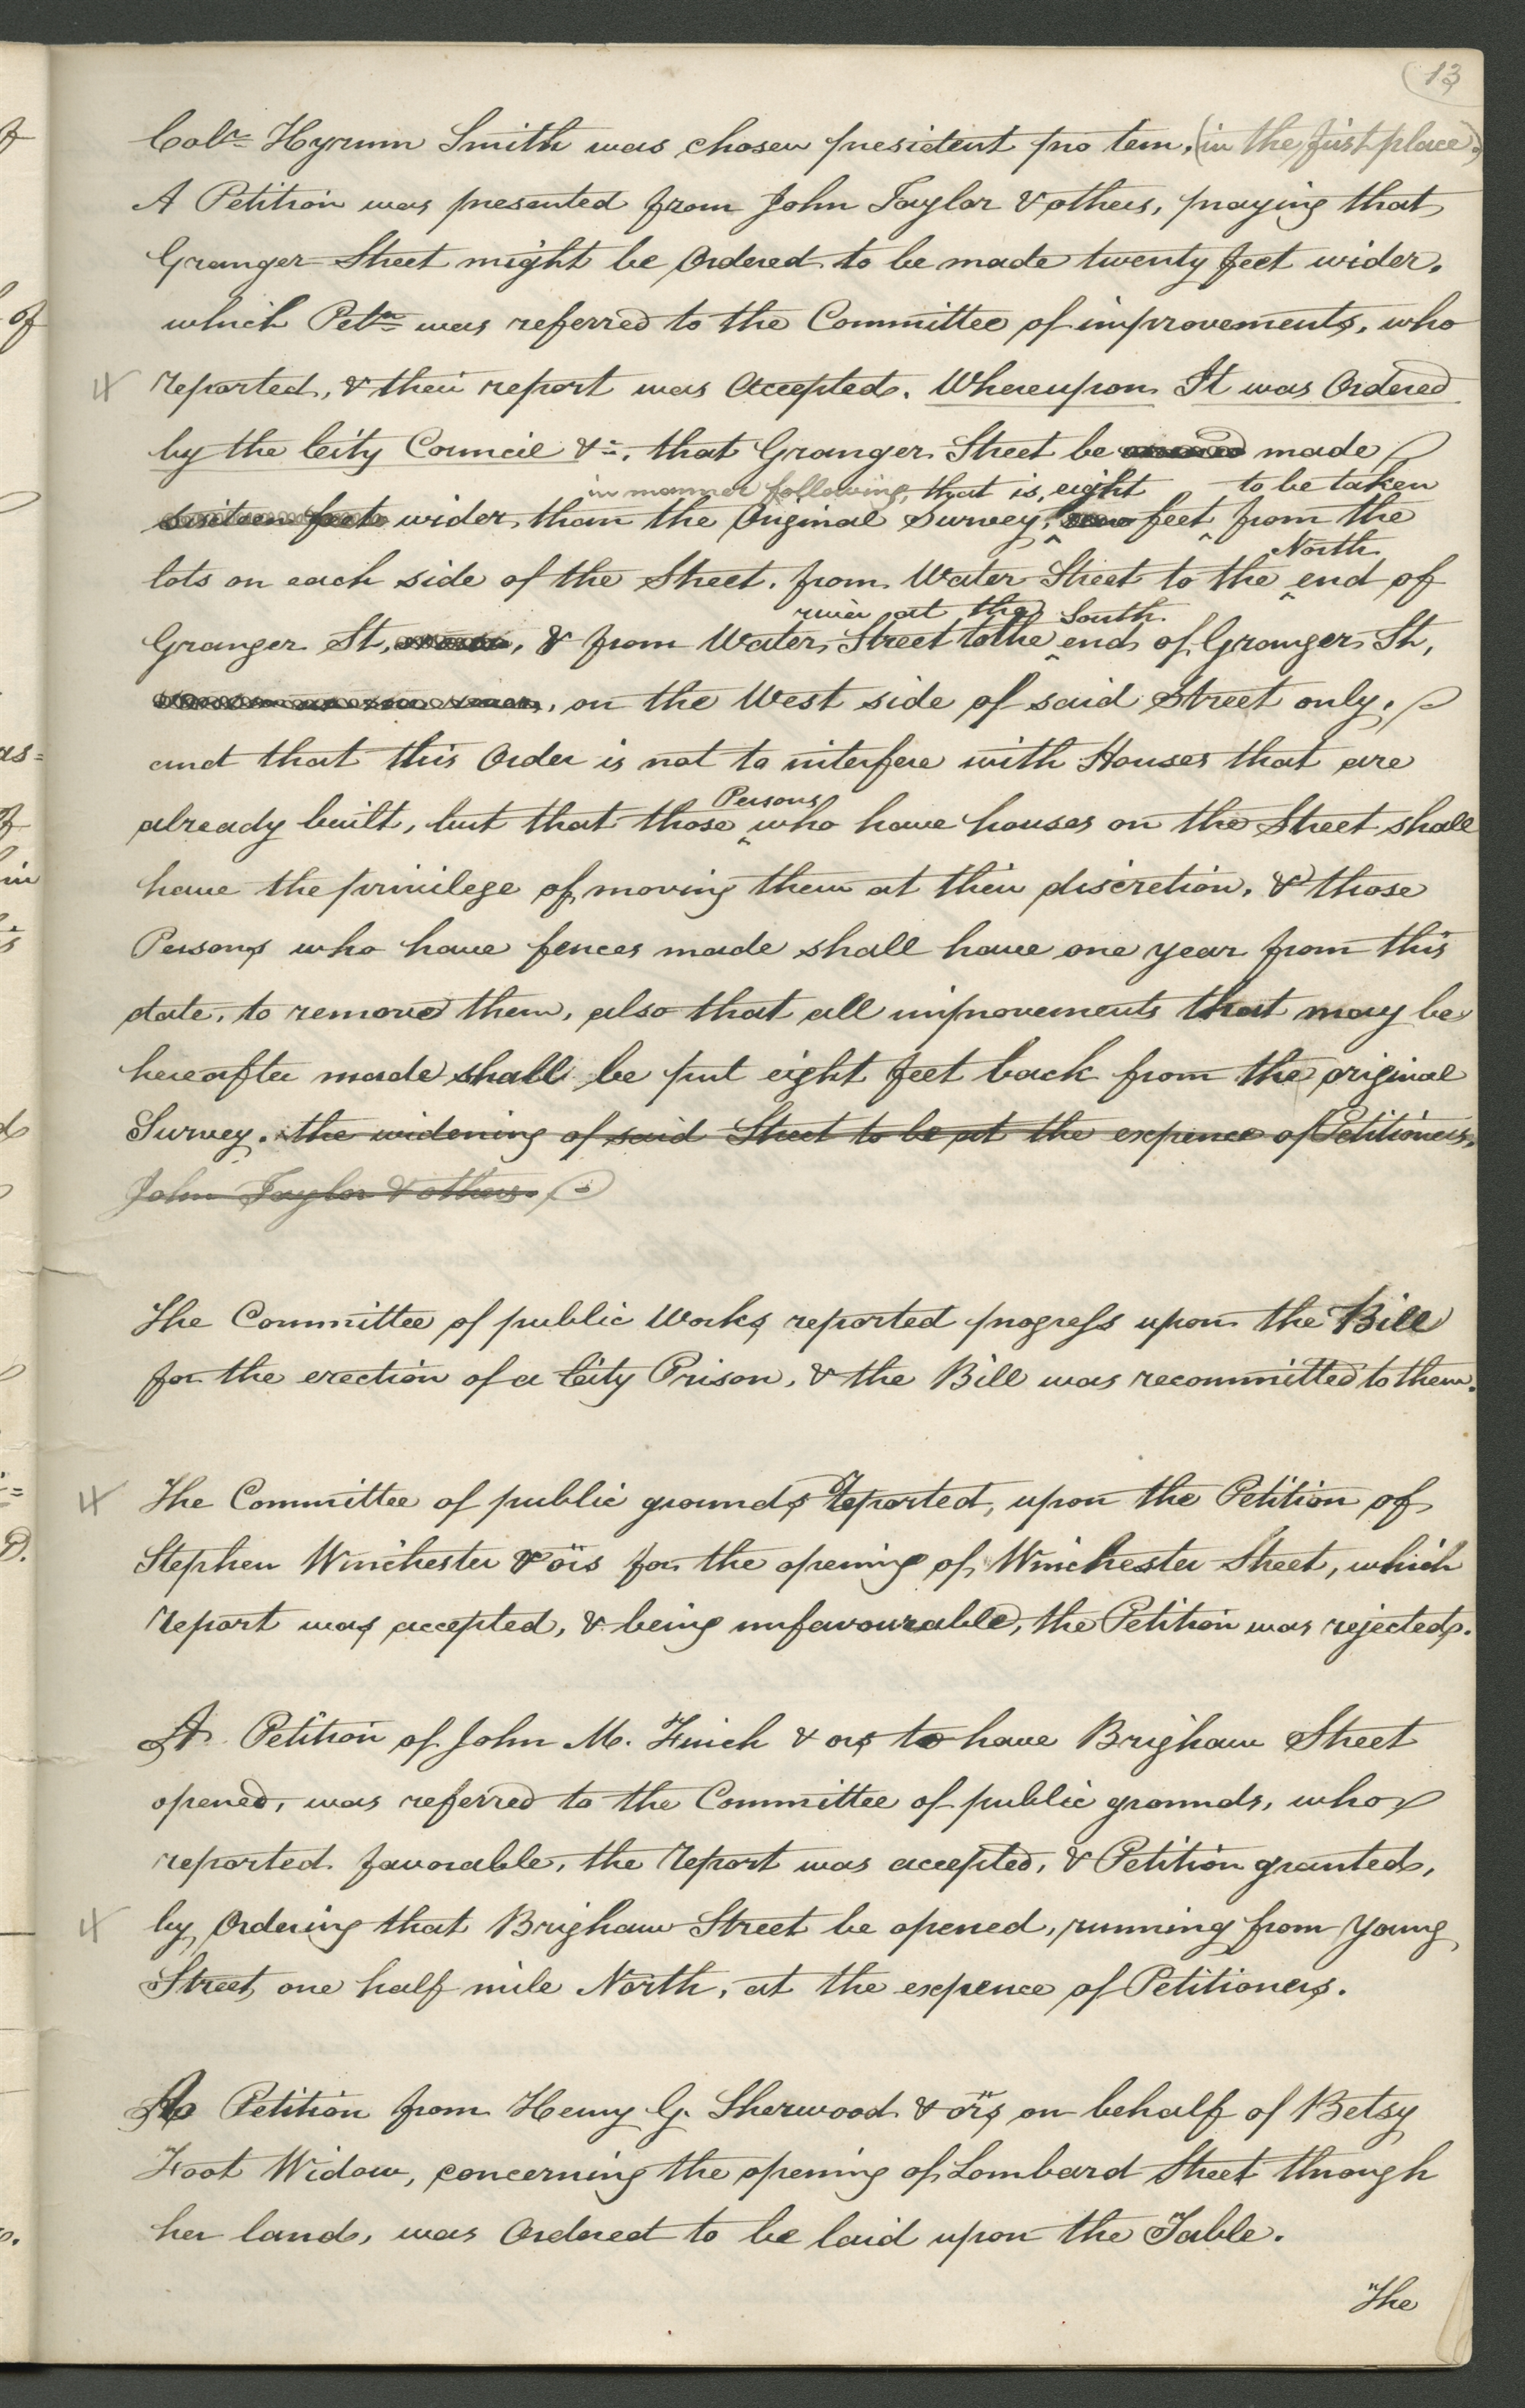 13
Colr. Hyrum Smith was chosen president pro tem, (in the first place.)
A Petition was presented from John Taylor & others, praying that
Granger Street might be Ordered to be made twenty feet wider.
which Petn. was referred to the Committee of improvements, who
reported, & their report was Accepted. Whereupon It was Ordered
by the City Council &c, that Granger Street be made
in manner following, that is, eight to be taken
sixteen feet wider than the Original Survey, feet from the
North
lots on each side of the Street. from Water Street to the end of
river at the South
Granger St, & from Water Street to the end of Granger St,
on the West side of said Street only.
and that this Order is not to interfere with Houses that are
Persons
already built, but that those who have houses on the Street shall
have the privilege of moving them at their discretion, & those
Persons who have fences made shall have one year from this
date, to remove them, also that all improvements that may be
hereafter made shall be put eight feet back from the original
Survey. the widening of said Street to be at the expence of Petitioners,
John Taylor & others.
The Committee of public Works reported progress upon the Bill
for the erection of a City Prison, & the Bill was recommitted to them.
The Committee of public grounds reported, upon the Petition of
Stephen Winchester & ors for the opening of Winchester Street, which
report was accepted, & being unfavourable, the Petition was rejected.
A Petition of John M. Finch & ors to have Brigham Street
opened, was referred to the Committee of public grounds, who
reported favorable, the report was accepted, & Petition granted,
by Ordering that Brigham Street be opened, running from Young
Street one half mile North, at the expence of Petitioners.
A Petition from Henry G. Sherwood & ors on behalf of Betsy
Foot Widow, concerning the opening of Lombard Street through
her land, was Ordered to be laid upon the Table.
The